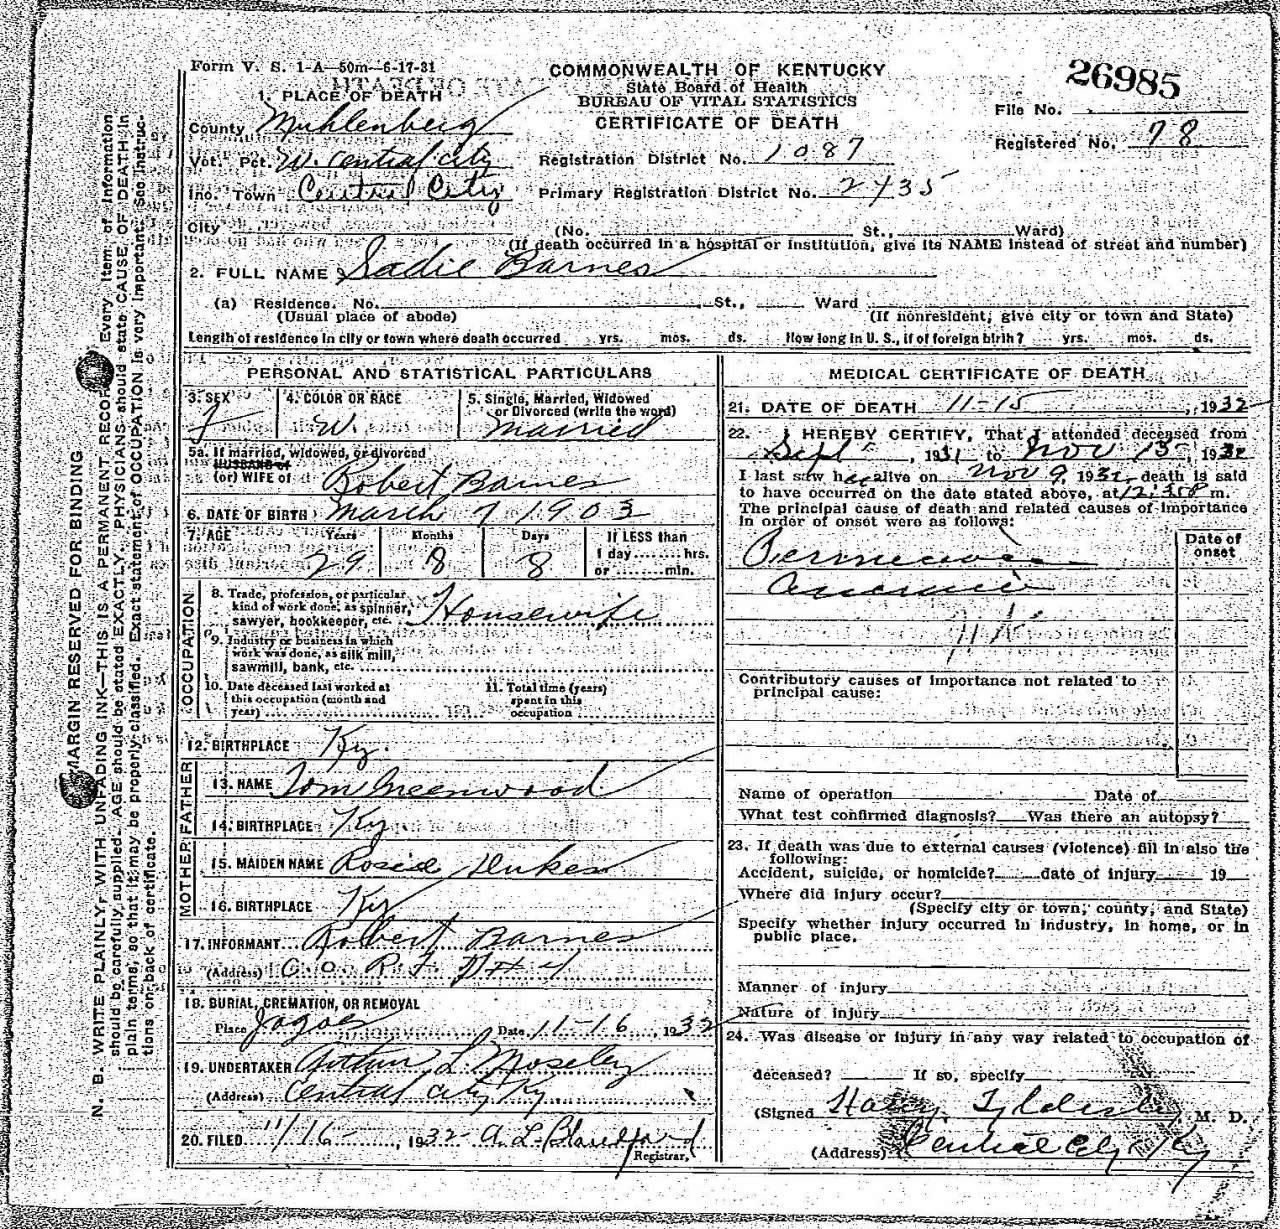 Form V. S. 1-A—50m—6-17-31
COMMONWEALTH OF KENTUCKY
State Board of Health
BUREAU OF VITAL STATISTICS
CERTIFICATE OF DEATH
26985
File No.
Registered No. 78
1. PLACE OF DEATH
County Muhlenberg
Vot. Pct. W. Central City
Inc. Town Central City
Registration District No. 1087
Primary Registration District No. 2435
City (No. St., Ward)
(If death occurred in a hospital or institution, give its NAME instead of street and number)
2. FULL NAME Sadie Barnes
(a) Residence. No. St., Ward
(Usual place of abode) (If nonresident, give city or town and State)
Length of residence in city or town where death occurred yrs. mos. ds. How long in U. S., if of foreign birth? yrs. mos. ds.
PERSONAL AND STATISTICAL PARTICULARS
3. SEX F
4. COLOR OR RACE W.
5. Single, Married, Widowed
or Divorced (write the word)
Married
5a. If married, widowed, or divorced
HUSBAND of
(or) WIFE of Robert Barnes
6. DATE OF BIRTH March 7 1903
7. AGE Years Months Days If LESS than
1 day........hrs.
29 8 8 or ........min.
OCCUPATION
8. Trade, profession, or particular
kind of work done, as spinner,
sawyer, bookkeeper, etc. Housewife
9. Industry or business in which
work was done, as silk mill,
sawmill, bank, etc.
10. Date deceased last worked at
this occupation (month and
year)
11. Total time (years)
spent in this
occupation
12. BIRTHPLACE Ky.
FATHER
13. NAME Tom Greenwood
14. BIRTHPLACE Ky
MOTHER
15. MAIDEN NAME Rosie Dukes
16. BIRTHPLACE Ky
17. INFORMANT Robert Barnes
(Address) C. C. R. F. D # 4
18. BURIAL, CREMATION, OR REMOVAL
Place Jagoes Date 11-16, 1932
19. UNDERTAKER Arthur L. Moseley
(Address) Central City Ky.
20. FILED 11/16, 1932 A. L. Blandford
Registrar.
MEDICAL CERTIFICATE OF DEATH
21. DATE OF DEATH 11-15, 1932
22. I HEREBY CERTIFY, That I attended deceased from
Sept, 1931 to Nov 15, 1932
I last saw her alive on Nov 9, 1932 death is said
to have occurred on the date stated above, at m.
The principal cause of death and related causes of importance
in order of onset were as follows:
Date of
onset
Pernicious
Anemia
Contributory causes of importance not related to
principal cause:
Name of operation Date of
What test confirmed diagnosis? Was there an autopsy?
23. If death was due to external causes (violence) fill in also the
following:
Accident, suicide, or homicide? date of injury 19
Where did injury occur?
(Specify city or town, county, and State)
Specify whether injury occurred in industry, in home, or in
public place.
Manner of injury
Nature of injury
24. Was disease or injury in any way related to occupation of
deceased? If so, specify
(Signed Harvey M. D.
(Address) Central City Ky
MARGIN RESERVED FOR BINDING
N. B. WRITE PLAINLY, WITH UNFADING INK—THIS IS A PERMANENT RECORD. Every item of information
should be carefully supplied. AGE should be stated EXACTLY. PHYSICIANS should state CAUSE OF DEATH in
plain terms, so that it may be properly classified. Exact statement of OCCUPATION is very important. See instruc-
tions on back of certificate.